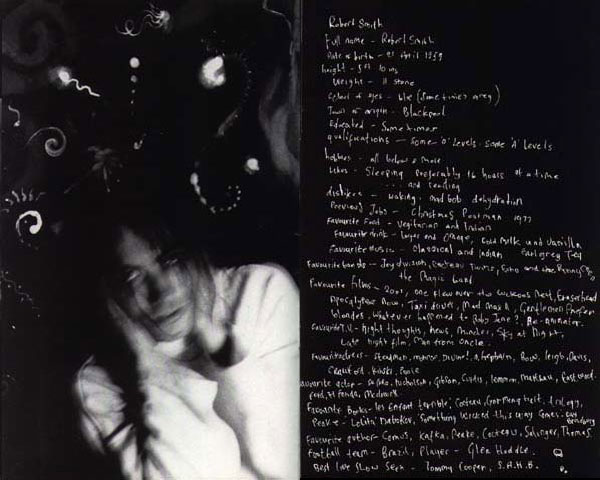 Robert Smith
Full name - Robert Smith
Date of birth - 21 April 1959
height - 5ft 10 ins
weight - 11 stone
Colour of eyes - blue (sometimes grey)
Town of origin - Blackpool
Educated - Sometimes
qualifications - some 'O' levels. some 'A' levels
hobbies - all below & more
Likes - Sleeping preferably 16 hours at a time
... and reading
dislikes - waking, and dehydration
Previous Jobs - Christmas Postman 1977
Favourite food - vegetarian and Indian
Favourite drink - lager and orange, cold milk and vanilla
Favourite music - classical and Indian Earl grey Tea
Favourite bands - Joy division, cocteau Twins, and the
the Magic band
Favourite films - 2001, one flew over the cuckoos Nest, Eraserhead
Apocalypse Now, Taxi driver, Mad Max 2, Gentlemen Prefer
blondes, whatever happened to Baby Jane?, Re-animator.
Favourite T.V - Night thoughts, News, Minder, Sky at Night,
Late night film, Man from Uncle.
Favourite - monroe, Divine!, hepburn, Bow, leigh, Davis,
Crawford, Kinski,
Favourite actor - nicholson, Gibson, lemmon, Eastwood.
Fonda,
Favourite Books - les Enfant terrible, Cocteau, Gormenghast, trilogy,
Peake - Lolita, Nabokov, Something wicked this way comes. Ray
Bradbury
Favourite author - Camus, Kafka, Peake, Cocteau, Salinger, Thomas
Football team - Brazil, Player - Glen Hoddle.
Best live Show Seen - Tommy Cooper, S.A.H.B.